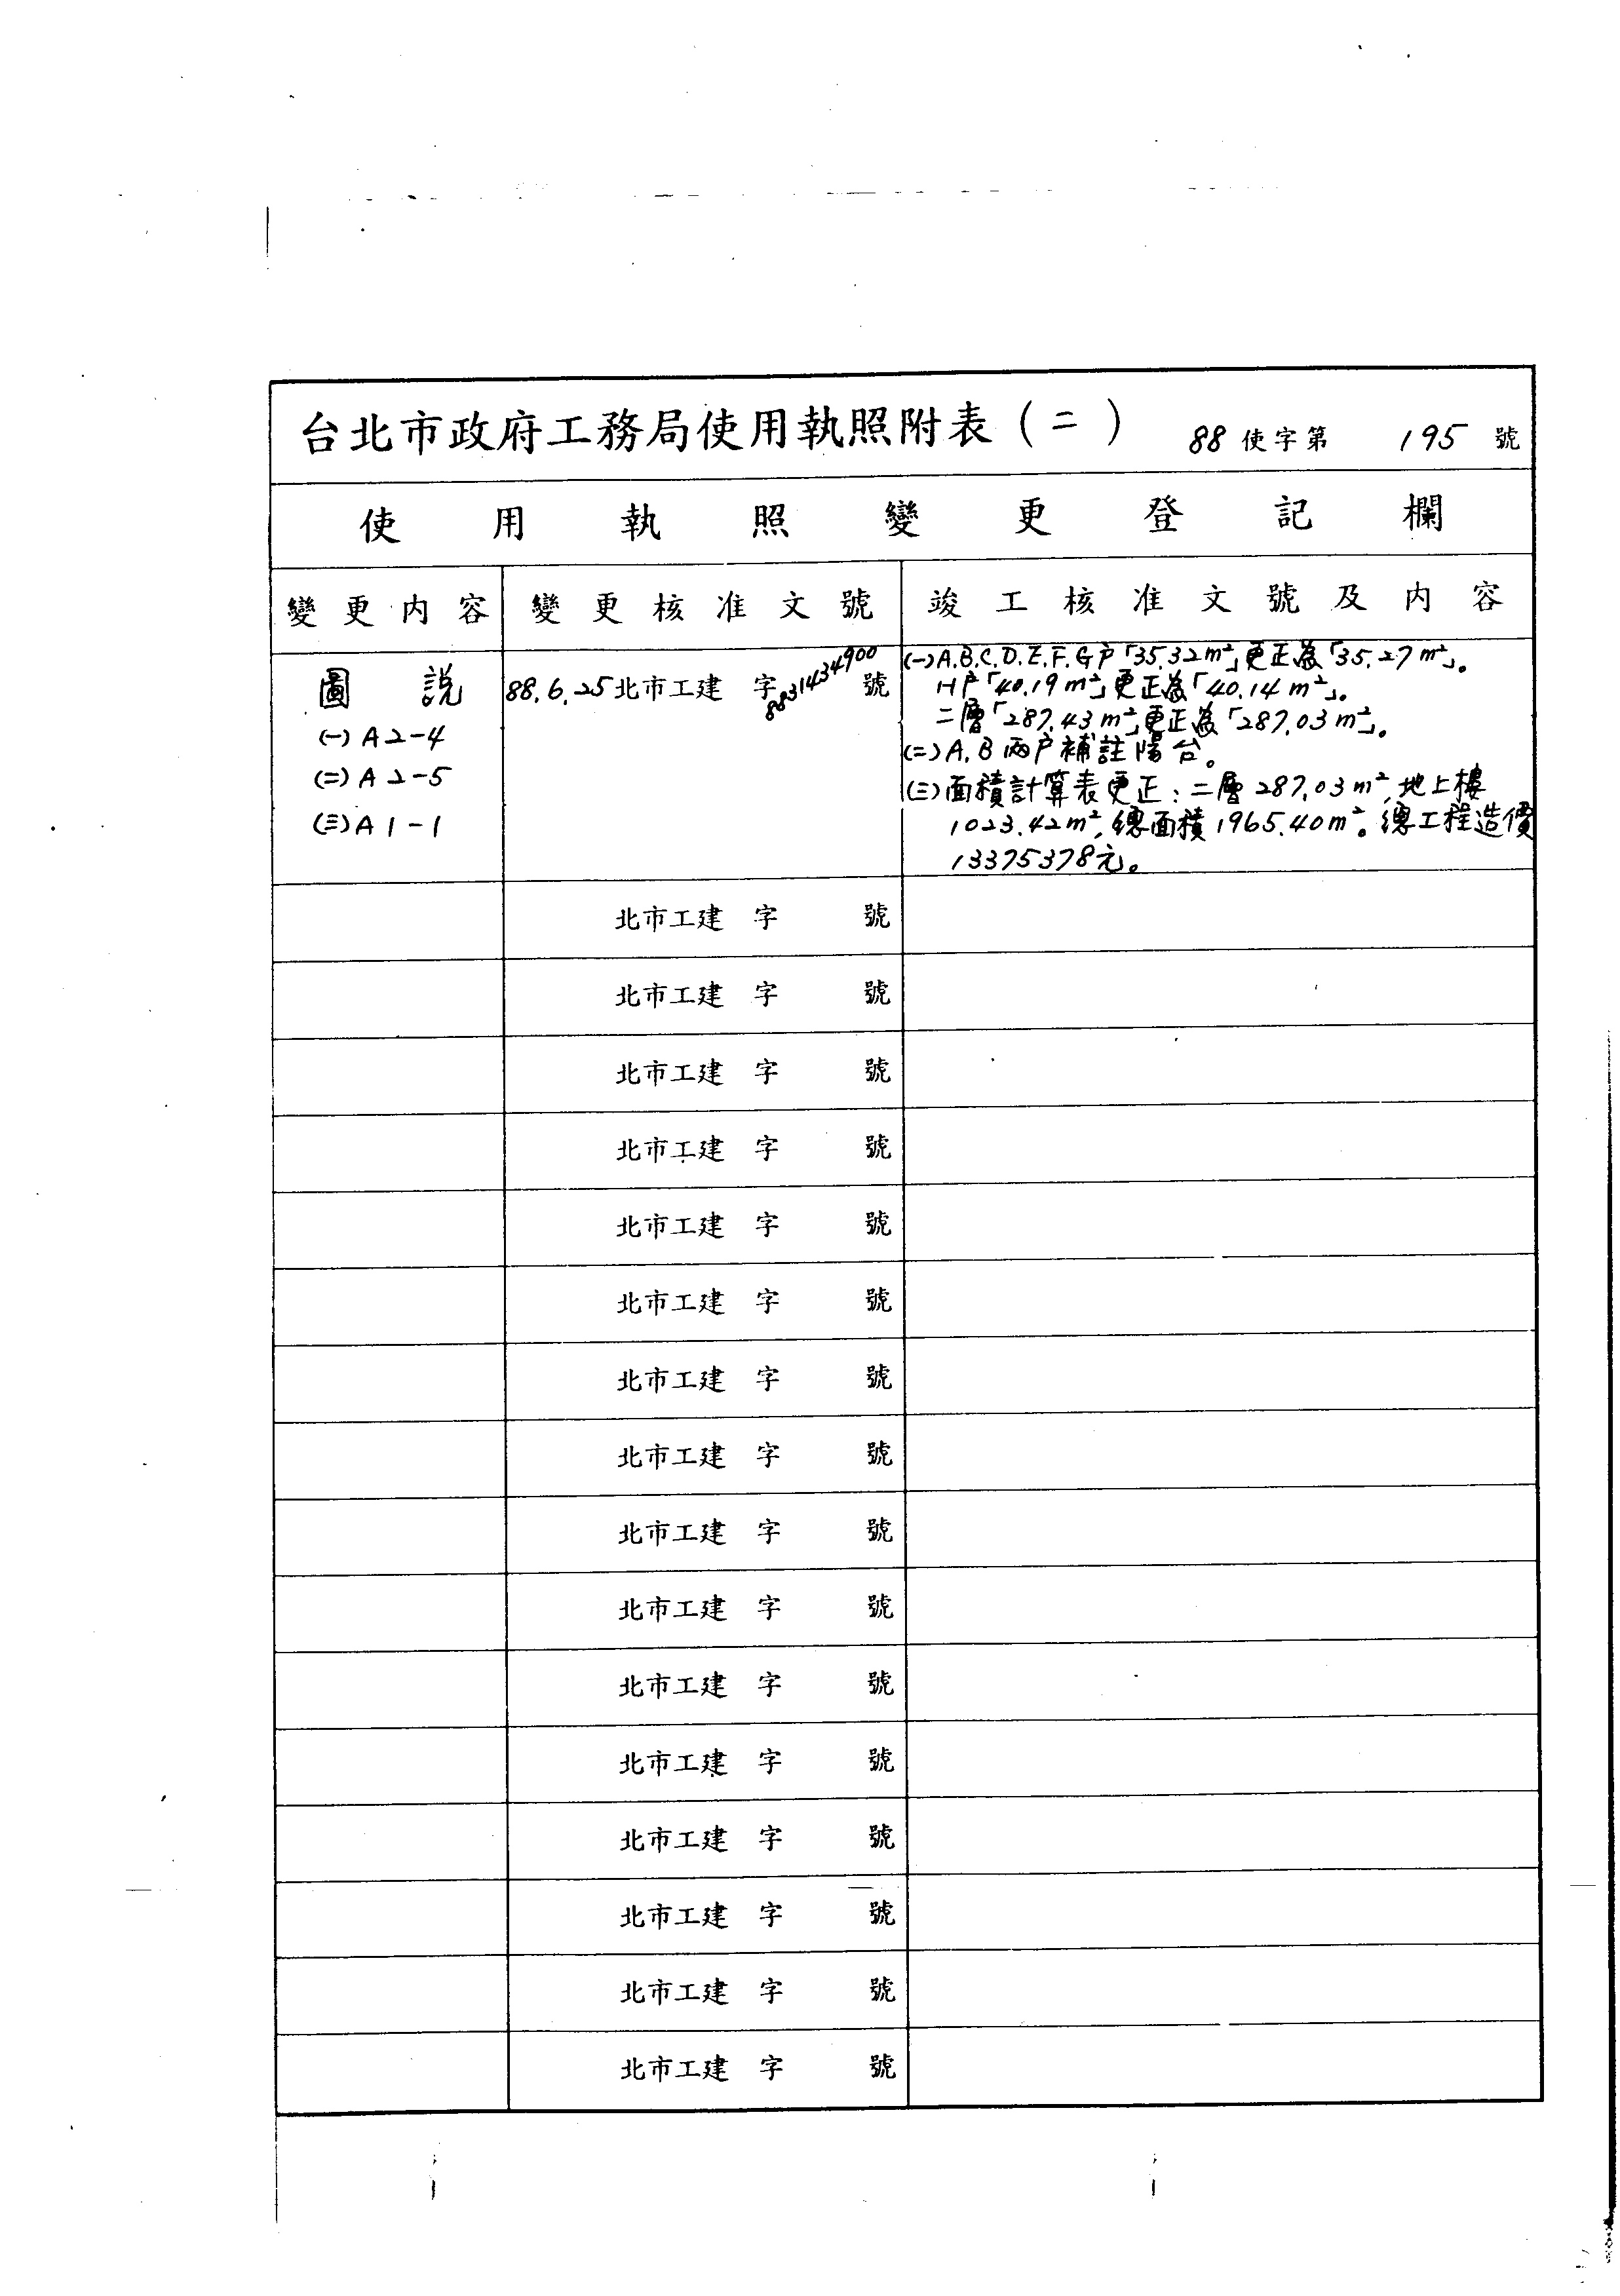 台北市政府工務局使用執照附表（二） 88使字第 195 號
使用執照變更登記欄
變更內容 變更核准文號 竣工核准文號及內容
圖說
(一)A2-4
(二)A2-5
(三)A1-1
88.6.25北市工建 字8831434900號
(一)A.B.C.D.E.F.G戶「35.32m²」更正為「35.27m²」。
H戶「40.19m²」更正為「40.14m²」。
二層「287.43m²」更正為「287.03m²」。
(二)A.B兩戶補註陽台。
(三)面積計算表更正:二層287.03m²,地上樓
1023.42m²,總面積1965.40m²。總工程造價
13375378元。
北市工建 字 號
北市工建 字 號
北市工建 字 號
北市工建 字 號
北市工建 字 號
北市工建 字 號
北市工建 字 號
北市工建 字 號
北市工建 字 號
北市工建 字 號
北市工建 字 號
北市工建 字 號
北市工建 字 號
北市工建 字 號
北市工建 字 號
北市工建 字 號